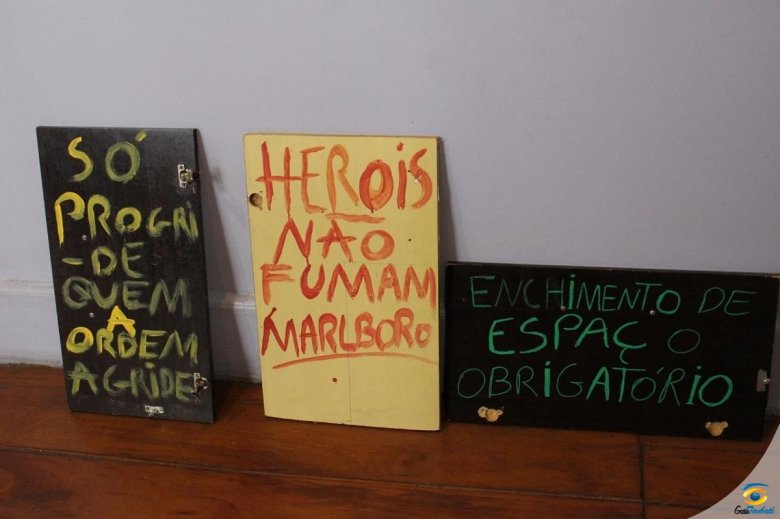 SÓ
PROGRI
-DE
QUEM
A
ORDEM
AGRIDE
HEROIS
NÃO
FUMAM
MARLBORO
ENCHIMENTO DE
ESPAÇO
OBRIGATÓRIO
Guia Taubaté